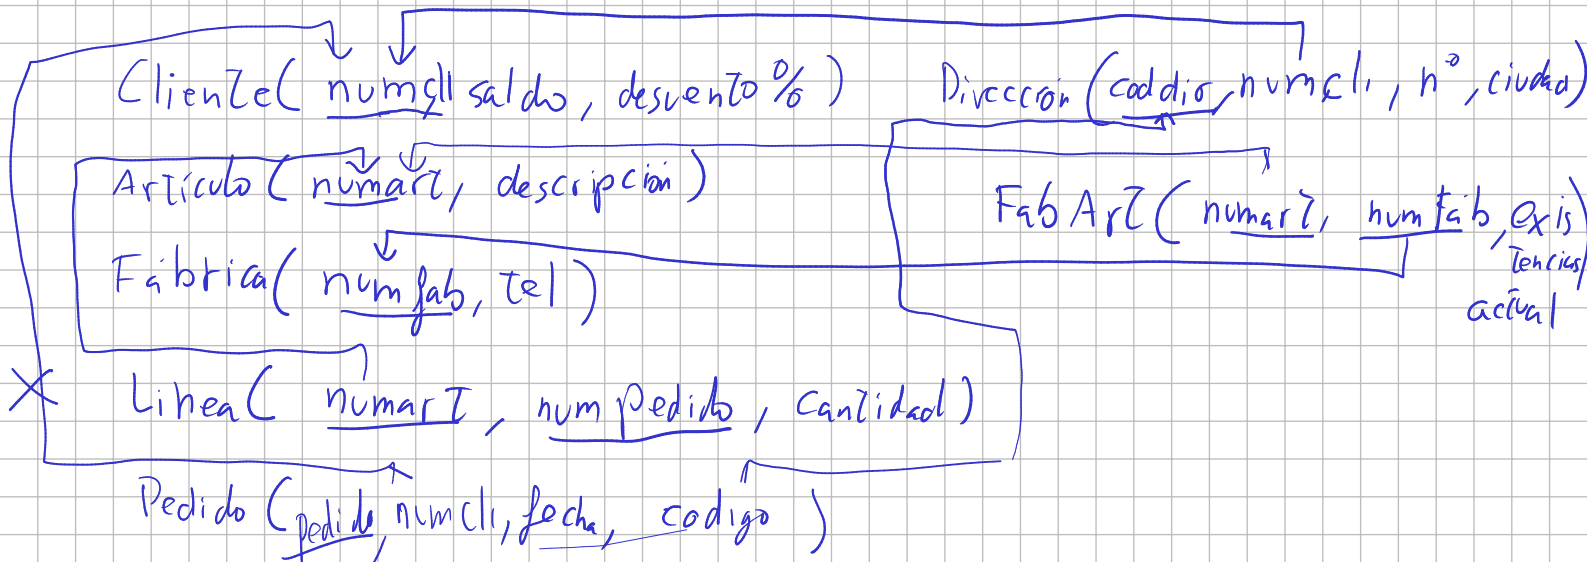 Cliente( numcli saldo, desvento % ) Dirección (coddir, numcli, nº, ciudad)
Artículo ( numart, descripción ) FabArt ( numart, numfab, exis
Fábrica( numfab, tel ) tencias)
actual
Linea( numart, numPedido, cantidad )
Pedido (pedido, numcli, fecha, codigo )